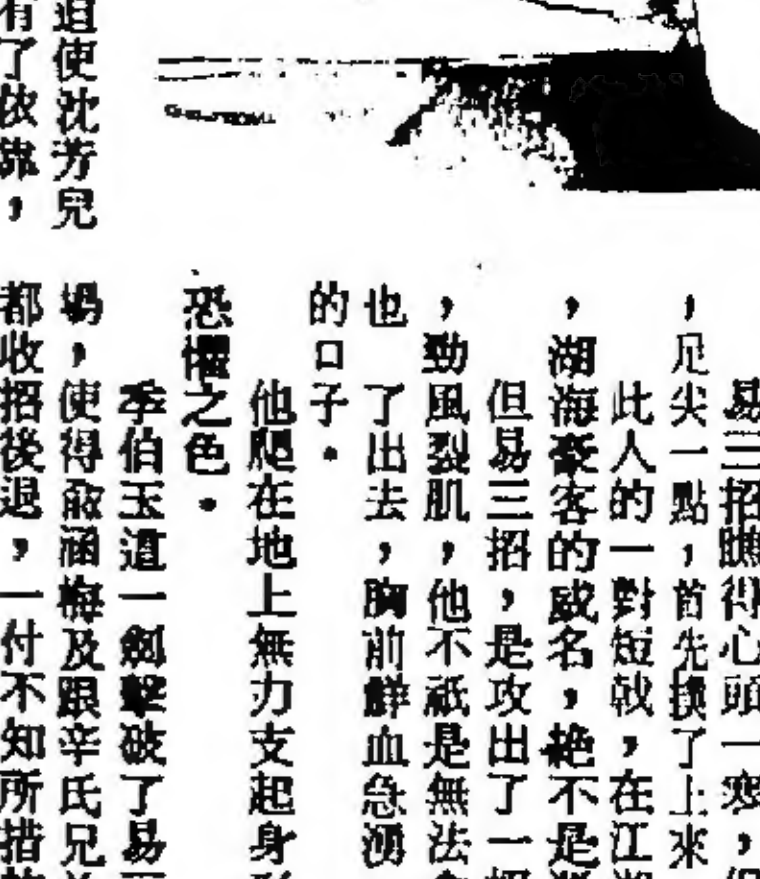 易三招瞧得心頭一寒，
，足尖一點，首先撲了上來
此人的一對短戟，在江
，湖海豪客的威名，絶不是
但易三招，是攻出了一
，勁風裂肌，他不祇是無法
也了出去，胸前鮮血急湧
的口子。
他爬在地上無力支起身
恐懼之色。
季伯玉這一劍擊破了易
，使得敵涵梅及跟辛氏兄
都收招後退，一付不知所措
迫使沈芳兒
有了依靠，